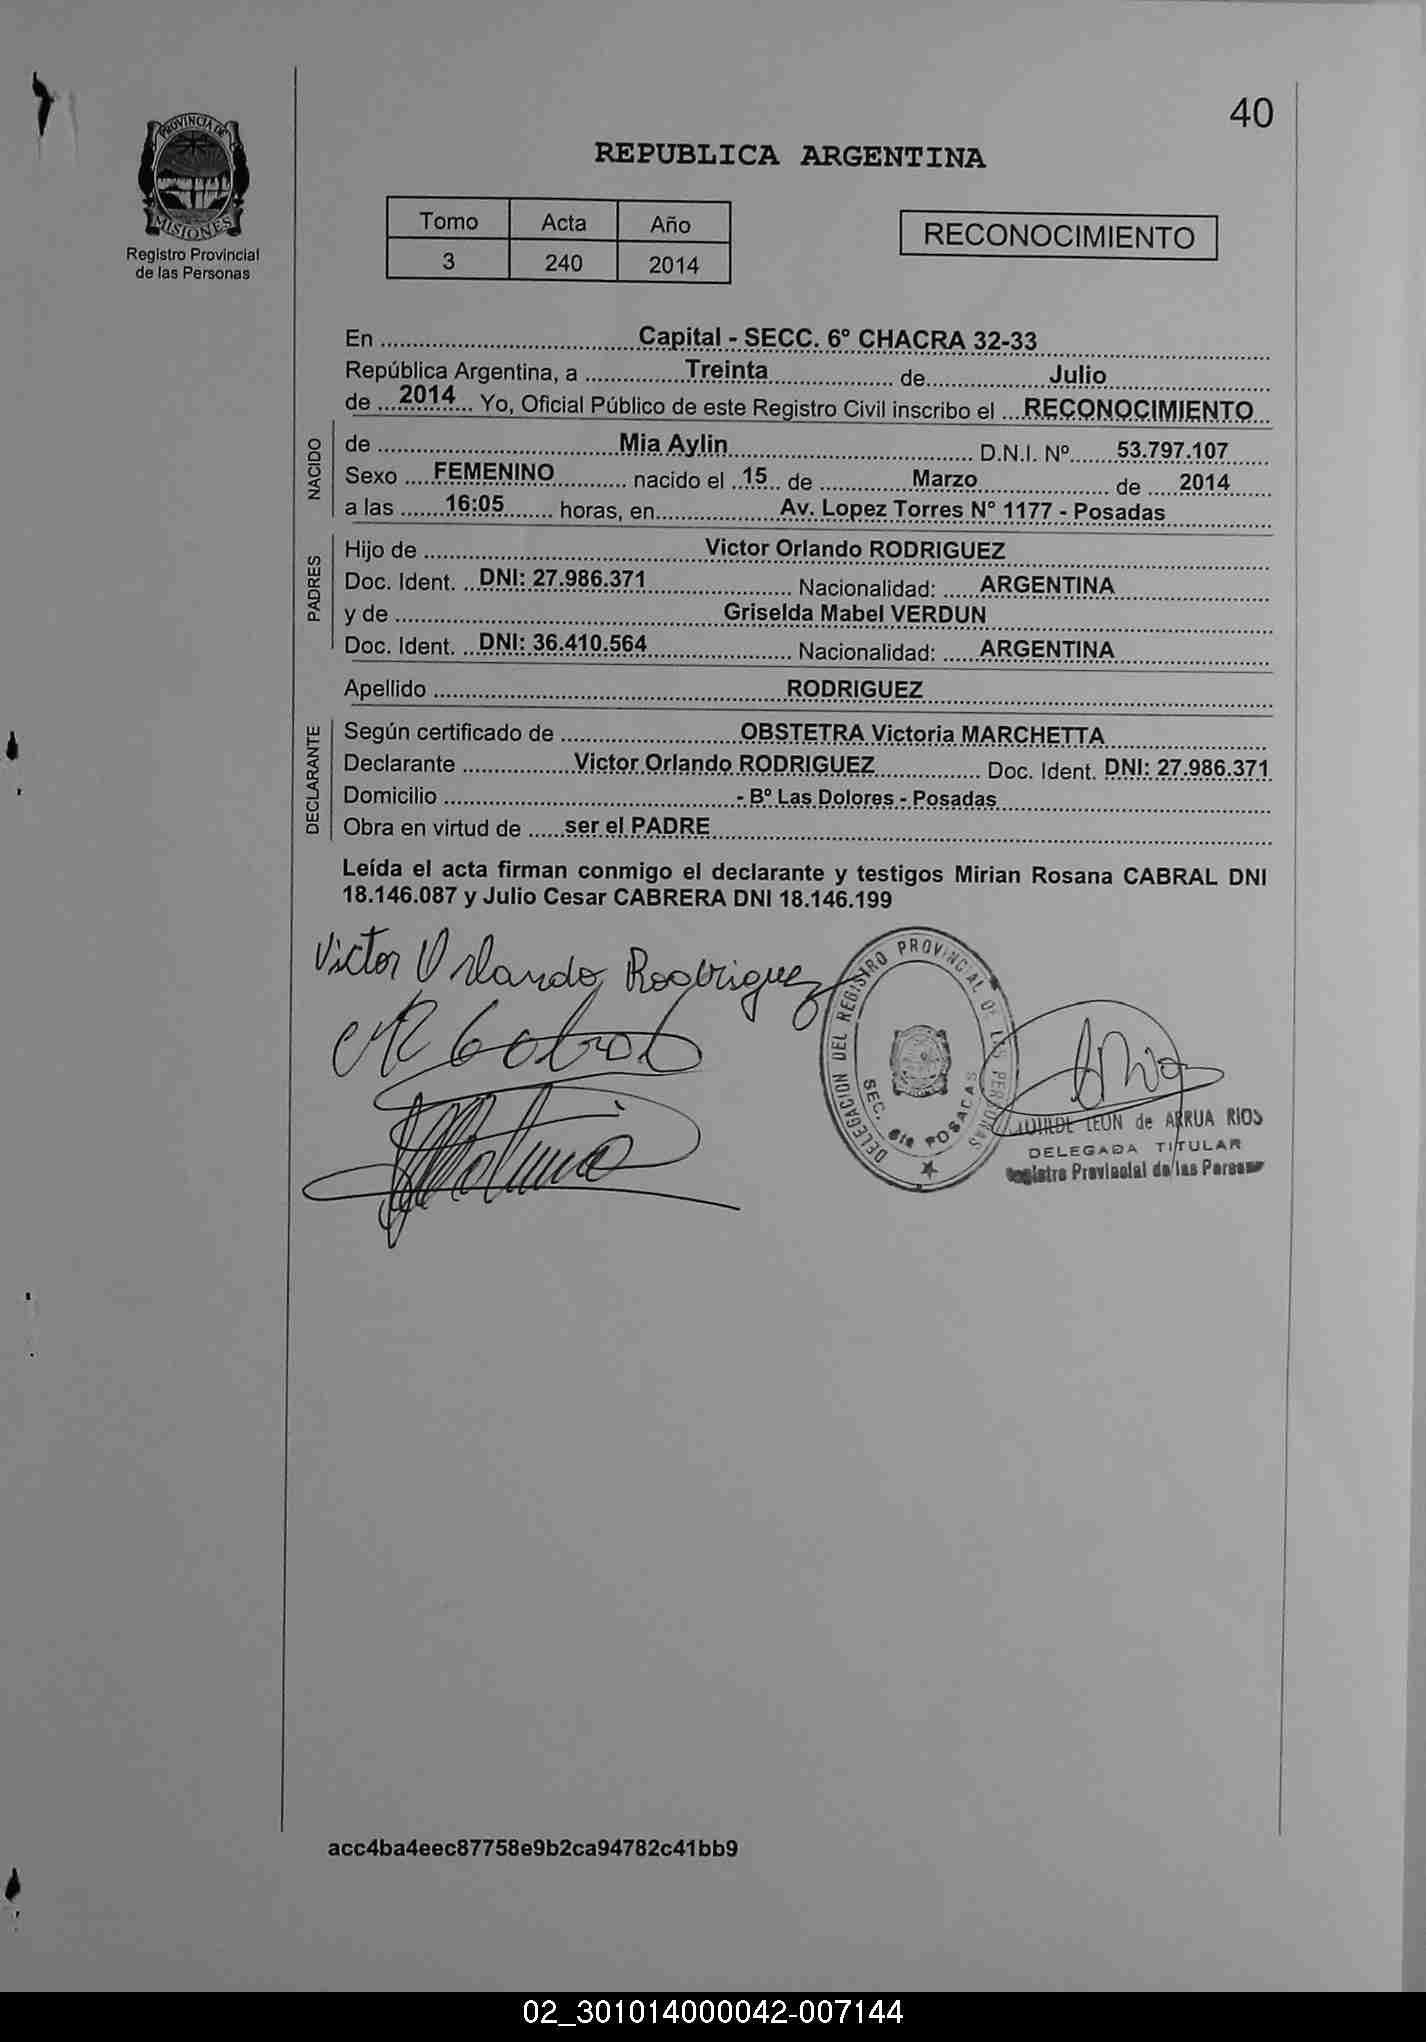 40
PROVINCIA DE
MISIONES
Registro Provincial
de las Personas
REPUBLICA ARGENTINA
Tomo Acta Año
3 240 2014
RECONOCIMIENTO
En Capital - SECC. 6º CHACRA 32-33
República Argentina, a Treinta de Julio
de 2014 Yo, Oficial Público de este Registro Civil inscribo el RECONOCIMIENTO
NACIDO
de Mia Aylin D.N.I. Nº 53.797.107
Sexo FEMENINO nacido el 15 de Marzo de 2014
a las 16:05 horas, en Av. Lopez Torres N° 1177 - Posadas
PADRES
Hijo de Victor Orlando RODRIGUEZ
Doc. Ident. DNI: 27.986.371 Nacionalidad: ARGENTINA
y de Griselda Mabel VERDUN
Doc. Ident. DNI: 36.410.564 Nacionalidad: ARGENTINA
Apellido RODRIGUEZ
DECLARANTE
Según certificado de OBSTETRA Victoria MARCHETTA
Declarante Victor Orlando RODRIGUEZ Doc. Ident. DNI: 27.986.371
Domicilio - Bº Las Dolores - Posadas
Obra en virtud de ser el PADRE
Leída el acta firman conmigo el declarante y testigos Mirian Rosana CABRAL DNI
18.146.087 y Julio Cesar CABRERA DNI 18.146.199
Victor Orlando Rodriguez
DELEGACION DEL REGISTRO PROVINCIAL DE LAS PERSONAS
SEC. 6ta POSADAS
LEON de ARRUA RIOS
DELEGADA TITULAR
Registro Provincial de las Personas
acc4ba4eec87758e9b2ca94782c41bb9
02_301014000042-007144